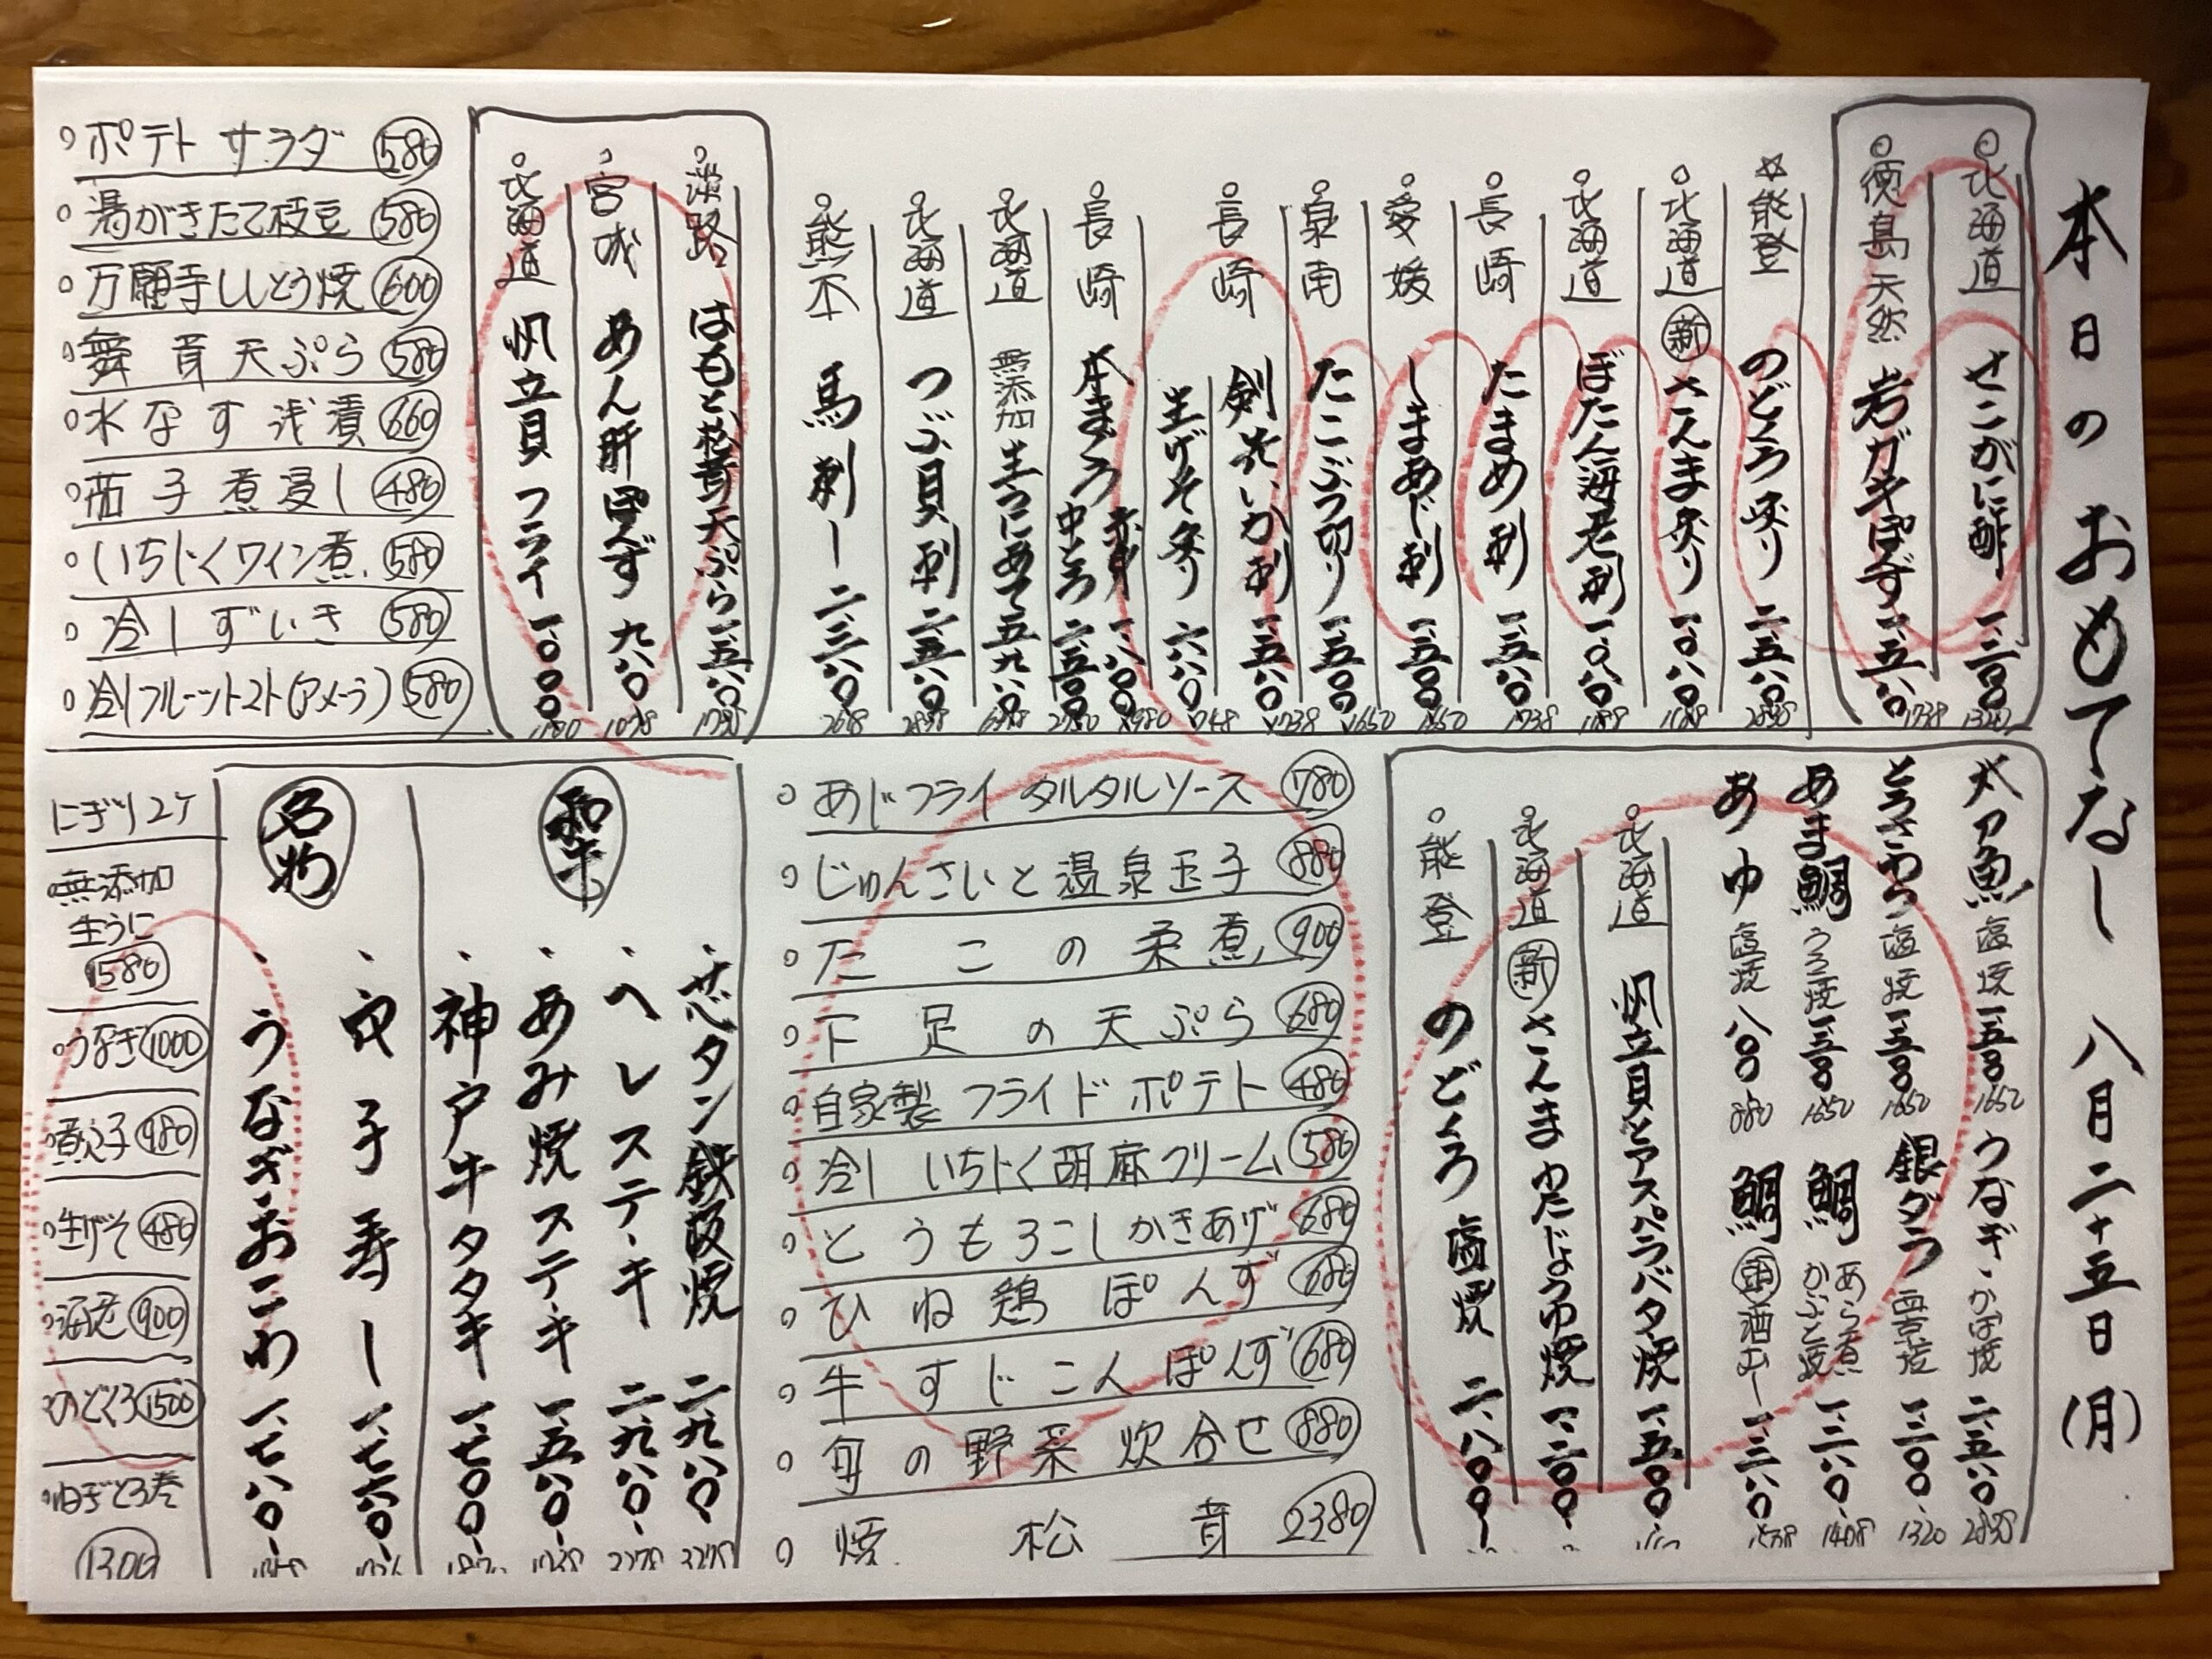 本日のおもてなし 八月二十五日(月)
北海道 せこがに酢 一、二〇〇 1320
徳島天然 岩ガキぽんず 一、五八〇 1738
能登 のどくろ炙り 二、五八〇 2838
北海道 新 さんま炙り 一、〇八〇 1188
北海道 ぼたん海老刺 一、〇八〇 1188
長崎 たまめ刺 一、五八〇 1738
愛媛 しまあじ刺 一、五〇〇 1650
泉南 たこぶつ切り 一、五〇〇 1650
長崎 剣先いか刺 一、五八〇 1738
生げそ炙り 六八〇 748
長崎 本まぐろ 赤身 一、八〇〇 1980
中とろ 二、五〇〇 2750
北海道 無添加 生うにあて 五、九八〇
北海道 つぶ貝刺 二、五八〇 2838
熊本 馬刺し 二、三八〇 2618
淡路 はもと松茸天ぷら 一、五八〇 1738
宮城 あん肝ぽんず 九八〇 1078
北海道 帆立貝フライ 一、〇〇〇 1100
ポテトサラダ 580
湯がきたて枝豆 580
万願寺ししとう焼 600
舞茸天ぷら 580
水なす浅漬 660
茄子煮浸し 480
いちじくワイン煮 580
冷しずいき 580
冷しフルーツトマト(アメーラ) 580
大アユ魚 塩焼 一、五〇〇 1650
とろさわら 塩焼 一、五〇〇 1650
あま鯛 うろこ焼 一、五〇〇 1650
あゆ 塩焼 八〇〇 880
うなぎ かば焼 二、五八〇 2838
銀ダラ 西京焼 一、二〇〇 1320
鯛 あら煮 かぶと焼 一、二八〇 1408
鯛 酒出し 一、三八〇
北海道 帆立貝とアスパラバター焼 一、五〇〇
北海道 新 さんまわたじょうゆ焼 一、二〇〇
能登 のどくろ 塩焼 二、八〇〇
あじフライ タルタルソース 780
じゅんさいと温泉玉子 880
たこの柔煮 900
下足の天ぷら 680
自家製フライドポテト 480
冷し いちじく胡麻クリーム 580
とうもろこしかきあげ 680
ひね鶏ぽんず 680
牛すじこんぽんず 680
旬の野菜炊合せ 880
焼松茸 2380
和牛
芯タン鉄板焼 二、九八〇 3278
ヘレステーキ 二、九八〇 3278
あみ焼ステーキ 一、五八〇 1738
神戸牛タタキ 一、七〇〇 1870
名物
穴子寿し 一、七六〇
うなぎおこわ 一、七八〇
にぎり2ケ
無添加
生うに
1580
うなぎ 1000
煮穴子 980
生げそ 480
海老 900
のどくろ 1500
ねぎとろ巻
1300